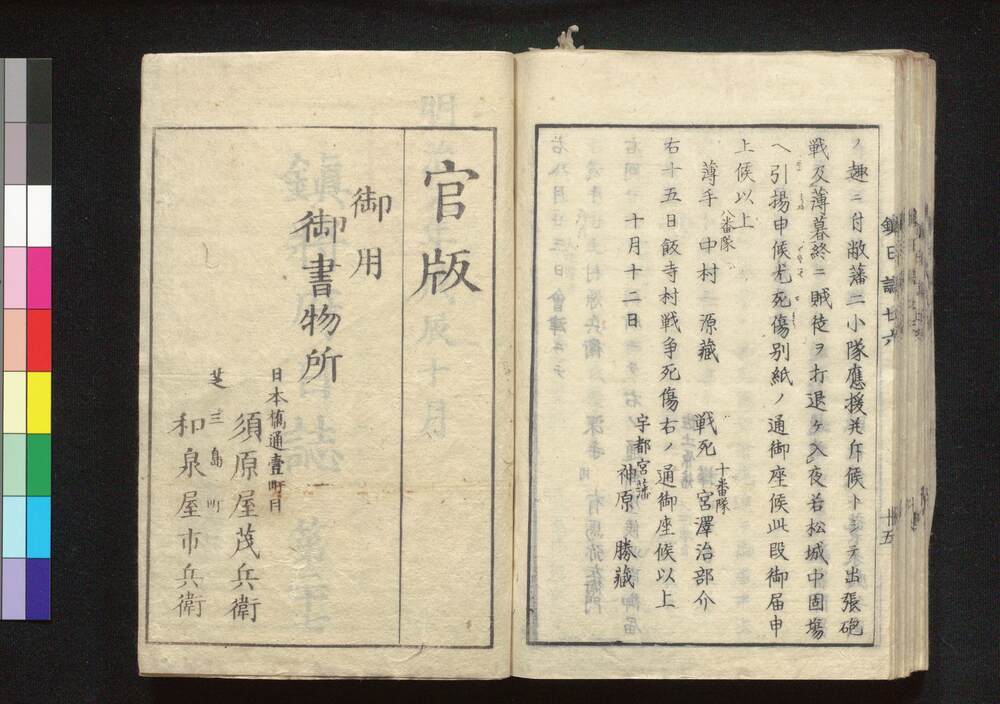 ノ趣ニ付敝藩二小隊應援并斥候トシテ出張砲
戦及薄暮終ニ賊徒ヲ打退ケ入夜若松城中固塲
ヘ引揚申候尤死傷別紙ノ通御座候此段御届申
上候以上
薄手 八番隊 中村 源藏 戦死 十番隊 宮澤治部介
右十五日飯寺村戦争死傷右ノ通御座候以上
十月十二日 宇都宮藩 神原 勝藏
鎮日誌廿六
十五
官版
御用
御書物所
日本橋通壹町目
須原屋茂兵衛
芝三島町
和泉屋市兵衛